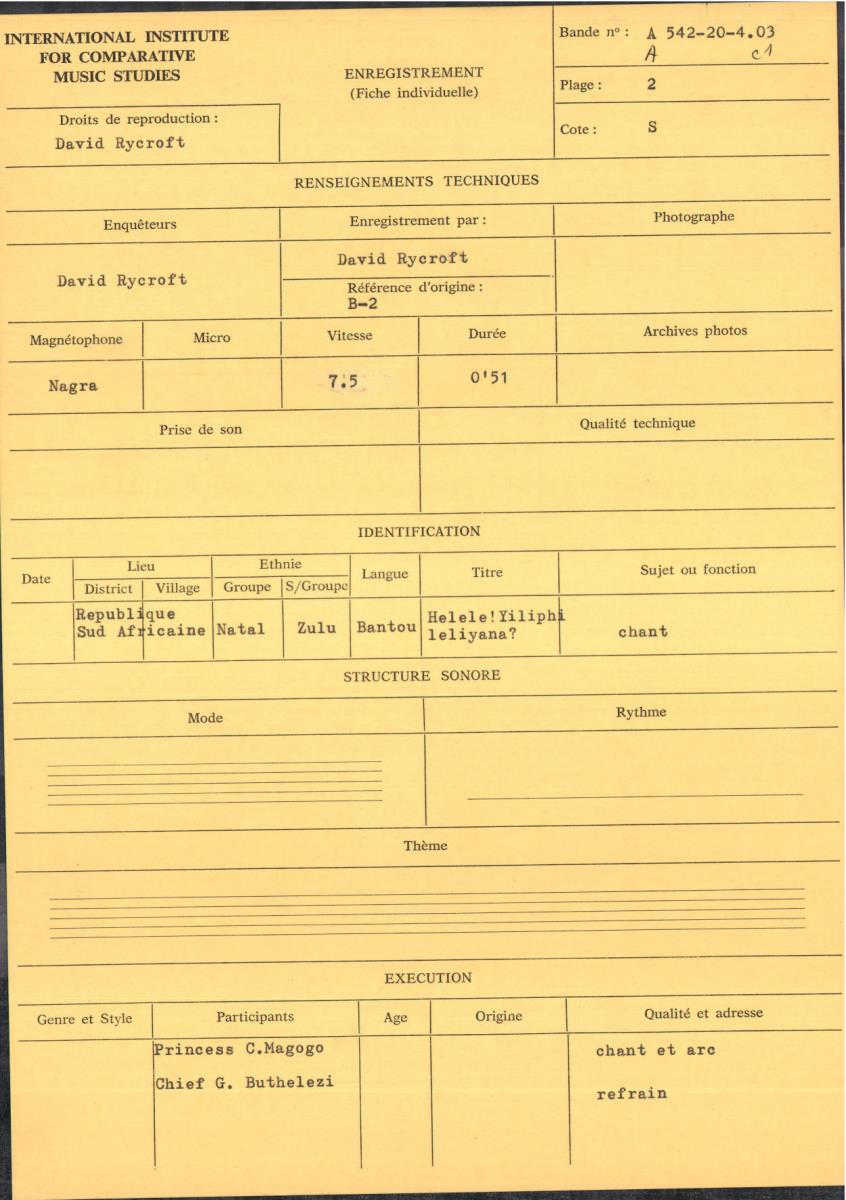 INTERNATIONAL INSTITUTE
FOR COMPARATIVE
MUSIC STUDIES
Droits de reproduction :
David Rycroft
ENREGISTREMENT
(Fiche individuelle)
Bande nº : A 542-20-4.03
A c1
Plage : 2
Cote : S
RENSEIGNEMENTS TECHNIQUES
Enquêteurs
Enregistrement par :
Photographe
David Rycroft
David Rycroft
Référence d'origine :
B-2
Magnétophone
Micro
Vitesse
Durée
Archives photos
Nagra
7.5
0'51
Prise de son
Qualité technique
IDENTIFICATION
Date
Lieu
District
Village
Ethnie
Groupe
S/Groupe
Langue
Titre
Sujet ou fonction
Republique
Sud Africaine
Natal
Zulu
Bantou
Helele!Yiliphi
leliyana?
chant
STRUCTURE SONORE
Mode
Rythme
Thème
EXECUTION
Genre et Style
Participants
Age
Origine
Qualité et adresse
Princess C.Magogo
chant et arc
Chief G. Buthelezi
refrain